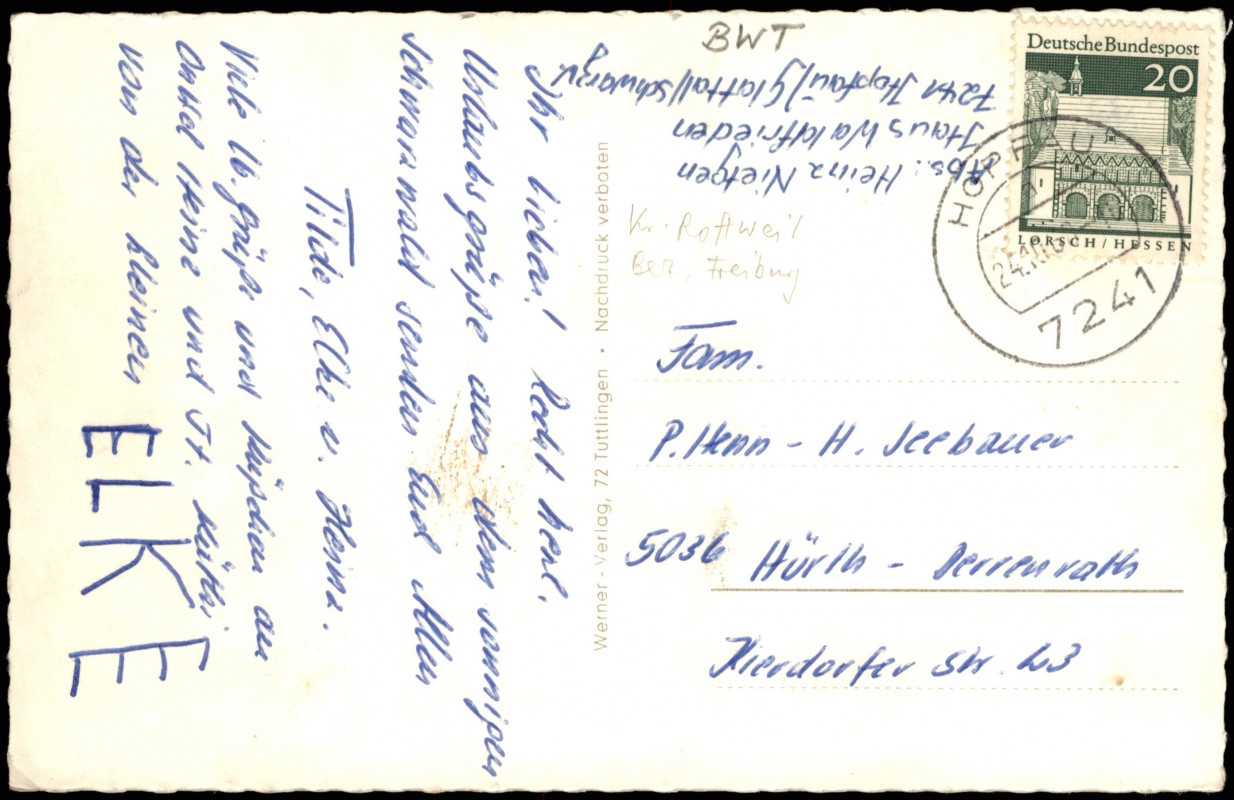 BWT
Abs.: Heinz Nietgen
Haus Waldfrieden
7241 Hopfau/Glattal/Schwarzw.
Deutsche Bundespost
20
LORSCH/HESSEN
HOPFAU
24.10.6
7241
Kr. Rottweil
Bez. Freiburg
Ihr Lieben! Recht herzl.
Urlaubsgrüße aus dem sonnigen
Schwarzwald senden Euch Allen
Tilde, Elke u. Heinz.
Viele lb. Grüße und Küßchen an
Onkel Heinz und Tt. Käthi
von der kleinen ELKE
Werner-Verlag, 72 Tuttlingen • Nachdruck verboten
Fam.
P. Henn - H. Seebauer
5036 Hürth - Berrenrath
Kierdorfer Str. 23